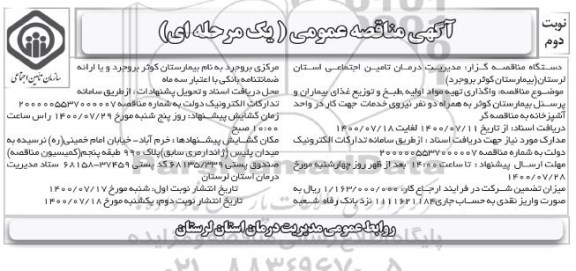 نوبت دوم
آگهی مناقصه عمومی ( یک مرحله ای)
سازمان تأمین اجتماعی
دستگاه مناقصه گزار: مدیریت درمان تامین اجتماعی استان
لرستان(بیمارستان کوثر بروجرد)
موضوع مناقصه: واگذاری تهیه مواد اولیه ،طبخ و توزیع غذای بیماران و
پرسنل بیمارستان کوثر به همراه دو نفر نیروی خدمات جهت کار در واحد
آشپزخانه به مناقصه گر
دریافت اسناد: از تاریخ ۱۴۰۰/۰۷/۱۱ لغایت ۱۴۰۰/۰۷/۱۸
مدارک مورد نیاز جهت دریافت اسناد : ازطریق سامانه تدارکات الکترونیک
دولت به شماره مناقصه ۲۰۰۰۰۰۵۵۳۷۰۰۰۰۰۷
مهلت ارسال پیشنهاد : تا ساعت ۱۴:۰۰ بعد از ظهر روز چهارشنبه مورخ
۱۴۰۰/۰۷/۲۸
میزان تضمین شرکت در فرایند ارجاع کار: ۱/۱۶۳/۰۰۰/۰۰۰ ریال به
صورت واریز نقدی به حساب جاری ۱۱۱۱۶۲۱۱۸۴ نزد بانک رفاه شعبه
مرکزی بروجرد به نام بیمارستان کوثر بروجرد و یا ارائه
ضمانتنامه بانکی با اعتبار سه ماه
محل دریافت اسناد و تحویل پیشنهادات : ازطریق سامانه
تدارکات الکترونیک دولت به شماره مناقصه ۲۰۰۰۰۰۵۵۳۷۰۰۰۰۰۷
زمان گشایش پیشنهاد: روز پنج شنبه مورخ ۱۴۰۰/۰۷/۲۹ راس ساعت
۱۰:۰۰ صبح
مکان گشایش پیشنهادها : خرم آباد- خیابان امام خمینی(ره) نرسیده به
میدان پلیس (ژاندارمری سابق)پلاک ۹۹۰ طبقه پنجم(کمیسیون مناقصه)
صندوق پستی ۶۸۱۳۵/۳۳۹ کد پستی ۳۷۴۵۹-۶۸۱۵۸ ستاد مدیریت
درمان استان لرستان
تاریخ انتشار نوبت اول: شنبه مورخ ۱۴۰۰/۰۷/۱۷
تاریخ انتشار نوبت دوم: یکشنبه مورخ ۱۴۰۰/۰۷/۱۸
روابط عمومی مدیریت درمان استان لرستان
۰۲۱-۸۸۳۴۹۶۷۰-۵